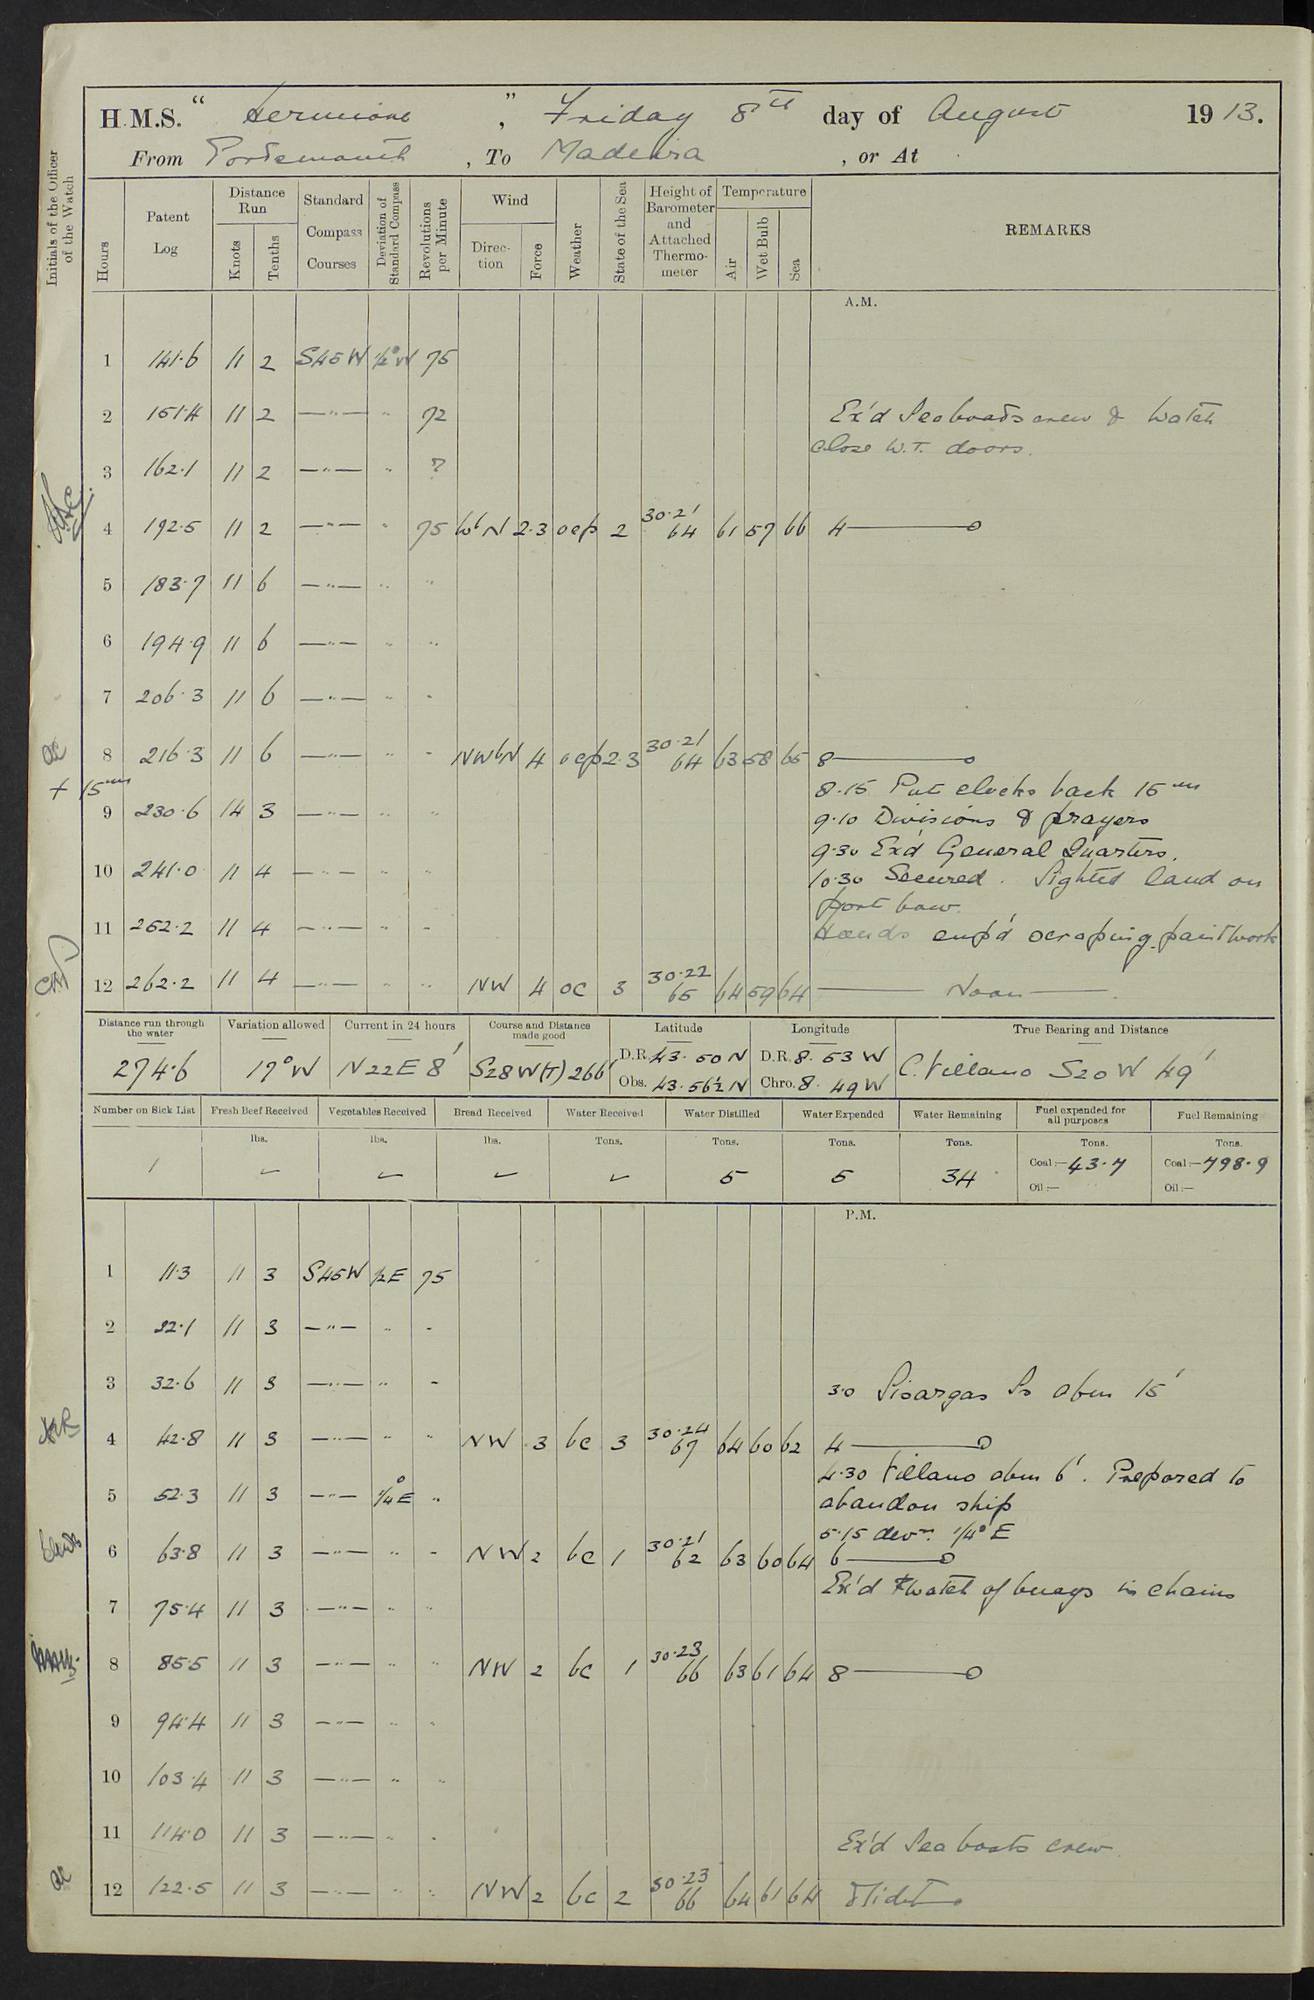 H.M.S. " Hermione ", Friday 8th day of August 1913.
From Portsmouth , To Madeira , or At
Initials of the Officer of the Watch
Hours
Patent Log
Distance Run
Knots
Tenths
Standard Compass Courses
Deviation of Standard Compass
Revolutions per Minute
Wind
Direction
Force
Weather
State of the Sea
Height of Barometer and Attached Thermometer
Temperature
Air
Wet Bulb
Sea
REMARKS
A.M.
1 141.6 11 2 S45W ½°W 75
2 151.4 11 2 —"— " 72 Ex'd Seaboats crew & Watch
close W.T. doors.
3 162.1 11 2 —"— " ?
4 192.5 11 2 —"— " 75 WbN 2.3 ocp 2 30.21 64 61 57 66 4
5 183.7 11 6 —"— " "
6 194.9 11 6 —"— " "
7 206.3 11 6 —"— " "
8 216.3 11 6 —"— " " NWbN 4 ocp 2.3 30.21 64 63 58 65 8
+ 15ms
8.15 Put clocks back 15ms
9 230.6 14 3 —"— " " 9.10 Divisions & prayers
9.30 Ex'd General Quarters.
10 241.0 11 4 —"— " " 10.30 Secured. Sighted land on
port bow.
11 252.2 11 4 —"— " " Hands emp'd scraping paintwork
12 262.2 11 4 —"— " " NW 4 oc 3 30.22 65 64 59 64 — Noon —.
Distance run through the water
Variation allowed
Current in 24 hours
Course and Distance made good
Latitude
Longitude
True Bearing and Distance
274.6 17°W N22E 8' S28W(T) 266' D.R. 43.50N D.R. 8.53W C. Villano S20W 49'
Obs. 43.56½N Chro. 8.49W
Number on Sick List
Fresh Beef Received
Vegetables Received
Bread Received
Water Received
Water Distilled
Water Expended
Water Remaining
Fuel expended for all purposes
Fuel Remaining
lbs. lbs. lbs. Tons. Tons. Tons. Tons. Tons. Tons.
1 5 5 34 Coal:— 43.7 Coal:— 798.9
Oil:— Oil:—
P.M.
1 11.3 11 3 S45W ½E 75
2 22.1 11 3 —"— " "
3 32.6 11 3 —"— " " 3.0 Sisargas Is abm 15'
4 42.8 11 3 —"— " " NW 3 bc 3 30.24 67 64 60 62 4
4.30 Villano abm 6'. Prepared to
5 52.3 11 3 —"— ¼°E " abandon ship
5.15 devn. ¼°E
6 63.8 11 3 —"— " " NW 2 bc 1 30.21 62 63 60 64 6
Ex'd watch of buoys in chains
7 75.4 11 3 —"— " "
8 85.5 11 3 —"— " " NW 2 bc 1 30.23 66 63 61 64 8
9 94.4 11 3 —"— " "
10 103.4 11 3 —"— " "
11 114.0 11 3 —"— " " Ex'd Sea boats crew
12 122.5 11 3 —"— " " NW 2 bc 2 30.23 66 64 61 64 Midt